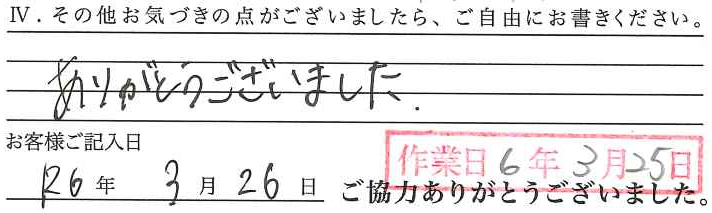 Ⅳ．その他お気づきの点がございましたら、ご自由にお書きください。
ありがとうございました.
お客様ご記入日
作業日 6年 3月25日
R6 年 3 月 26 日 ご協力ありがとうございました。